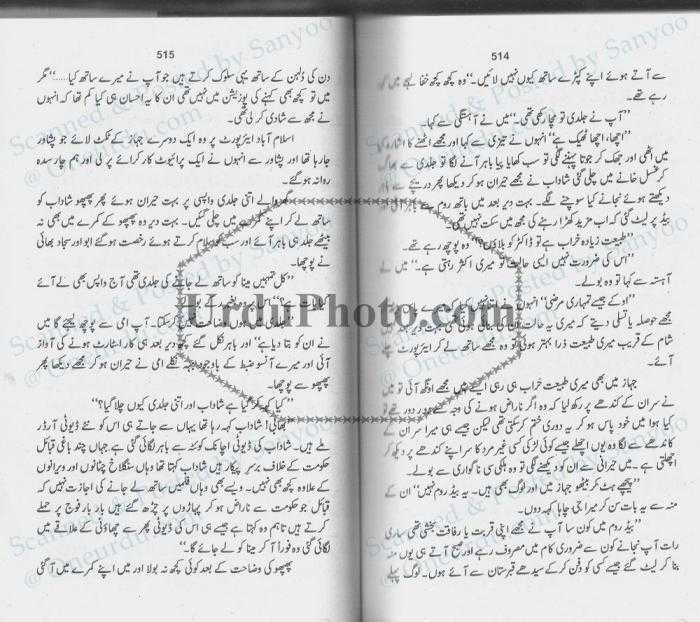 514
سے آتے ہوئے اپنے کپڑے ساتھ کیوں نہیں لائیں۔" وہ کچھ کچھ خفا لہجے میں کہہ
رہے تھے۔
"آپ نے جلدی تو مچا رکھی تھی۔" میں نے آہستگی سے کہا۔
"اچھا، اچھا ٹھیک ہے" انہوں نے تیزی سے کہا اور مجھے اٹھنے کا اشارہ کیا
میں اٹھی اور جھک کر جوتا پہننے لگی تو سب کھایا پیا باہر آنے لگا تو جلدی سے بھاگ
کر غسل خانے میں چلی گئی شاداب نے مجھے حیران ہو کر دیکھا پھر دریچے سے باہر
دیکھتے ہوئے نجانے کیا سوچنے لگے۔ بہت دیر بعد میں باتھ روم سے باہر آئی اور
بیڈ پر لیٹ گئی کہ اب مزید کھڑا رہنے کی مجھ میں سکت نہیں تھی۔
"طبیعت زیادہ خراب ہے تو ڈاکٹر کو بلاؤں؟" وہ پوچھ رہے تھے۔
"اس کی ضرورت نہیں ایسی حالت تو میری اکثر رہتی ہے۔" میں نے
آہستہ سے کہا تو وہ بولے۔
"اوکے جیسے تمہاری مرضی" انہوں نے اتنا نہیں کیا کہ میرے پاس
مجھے حوصلہ یا تسلی دیتے کہ میری یہ حالت ان کی بنائی ہوئی تھی بہت دیر بعد
شام کے قریب میری طبیعت ذرا بہتر ہوئی تو وہ مجھے ساتھ لے کر ایئرپورٹ چلے
آئے۔
جہاز میں بھی میری طبیعت خراب ہی رہی ایسے میں مجھے اونگھ آئی تو میں
نے سر ان کے کندھے پر رکھ لیا کہ وہ اگر ناراض ہونے کی وجہ سے دور دور تھے تو
کیا ہوا میں خود پاس ہو کر یہ دوری ختم کر سکتی تھی لیکن جیسے ہی میرا سر ان کے
کاندھے سے لگا وہ یوں اچھلے جیسے کوئی لڑکی کسی غیر مرد کا سر اپنے کندھے پر دیکھ کر
اچھلتی ہے۔ میں حیرانی سے ان کو دیکھنے لگی تو وہ ہلکی سی ناگواری سے بولے۔
"پیچھے ہٹ کر بیٹھو جہاز میں اور لوگ بھی ہیں۔ یہ بیڈ روم نہیں" ان کے
منہ سے یہ بات سن کر میرا جی چاہا کہہ دوں۔
"بیڈ روم میں کون سا آپ نے مجھے اپنی قربت یا رفاقت بخشی تھی ساری
رات آپ نجانے کون سے ضروری کام میں مصروف رہے اور صبح آتے ہی یوں منہ
بنا کر لیٹ گئے جیسے کسی کو دفن کر کے سیدھے قبرستان سے آئے ہوں۔ لوگ پہلے
515
دن کی دلہن کے ساتھ یہی سلوک کرتے ہیں جو آپ نے میرے ساتھ کیا......" مگر
میں تو کچھ بھی کہنے کی پوزیشن میں نہیں تھی ان کا یہ احسان ہی کیا کم تھا کہ انہوں
نے مجھ سے شادی کر لی تھی۔
اسلام آباد ایئرپورٹ پر وہ ایک دوسرے جہاز کے ٹکٹ لائے جو پشاور
جا رہا تھا اور پشاور سے انہوں نے ایک پرائیوٹ کار کرائے پر لی اور ہم چارسدہ
روانہ ہو گئے۔
گھر والے اتنی جلدی واپسی پر بہت حیران ہوئے پھر پھپھو شاداب کو
ساتھ لے کر اپنے کمرے میں چلی گئیں۔ بہت دیر وہ پھپھو کے کمرے میں بھی نہ
بیٹھے جلد ہی باہر آئے اور سب کو سلام کرتے ہوئے رخصت ہو گئے ابو اور سجاد بھائی
نے پوچھا۔
"کل تمہیں مینا کو ساتھ لے جانے کی جلدی تھی آج واپس بھی لے آئے
"جلدی میں ہوں وضاحت نہیں کر سکتا۔ آپ امی سے پوچھ لیجئے گا میں
نے ان کو بتا دیا ہے" اور باہر نکل گئے کچھ دیر بعد ہی کار اسٹارٹ ہونے کی آواز
آئی اور میرے آنسو ضبط کے باوجود بہہ نکلے امی نے حیران ہو کر مجھے دیکھا پھر
پھپھو سے پوچھا۔
"کیا کہہ کر گیا ہے شاداب اور اتنی جلدی کیوں چلا گیا؟"
"بھابی! شاداب کہہ رہا تھا یہاں سے جاتے ہی اس کو نئے ڈیوٹی آرڈر
ملے ہیں۔ شاداب کی ڈیوٹی اچانک کوئٹہ سے باہر لگائی گئی ہے جہاں چند باغی قبائل
حکومت کے خلاف برسر پیکار ہیں شاداب کہتا تھا وہاں سنگلاخ چٹانوں اور ویرانوں
کے علاوہ کچھ بھی نہیں۔ ویسے بھی وہاں فیملیں ساتھ لے جانے کی اجازت نہیں کہ
قبائل جو حکومت سے ناراض ہو کر پہاڑوں پر چڑھ گئے ہیں بار بار فوج پر حملے
کرتے ہیں تاہم وہ کہتا ہے جیسے ہی اس کی ڈیوٹی پھر سے چھاؤنی کے علاقے میں
لگائی گئی وہ فوراً آ کر مینا کو لے جائے گا۔"
پھپھو کی وضاحت کے بعد کوئی کچھ نہ بولا اور میں اپنے کمرے میں آ گئی
UrduPhoto.com